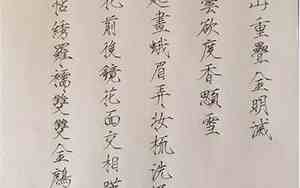 山重疊金明滅
雲欲度香顋雪
起畫蛾眉弄妝梳洗
花前後鏡花面交相
帖綉羅襦雙雙金鷓